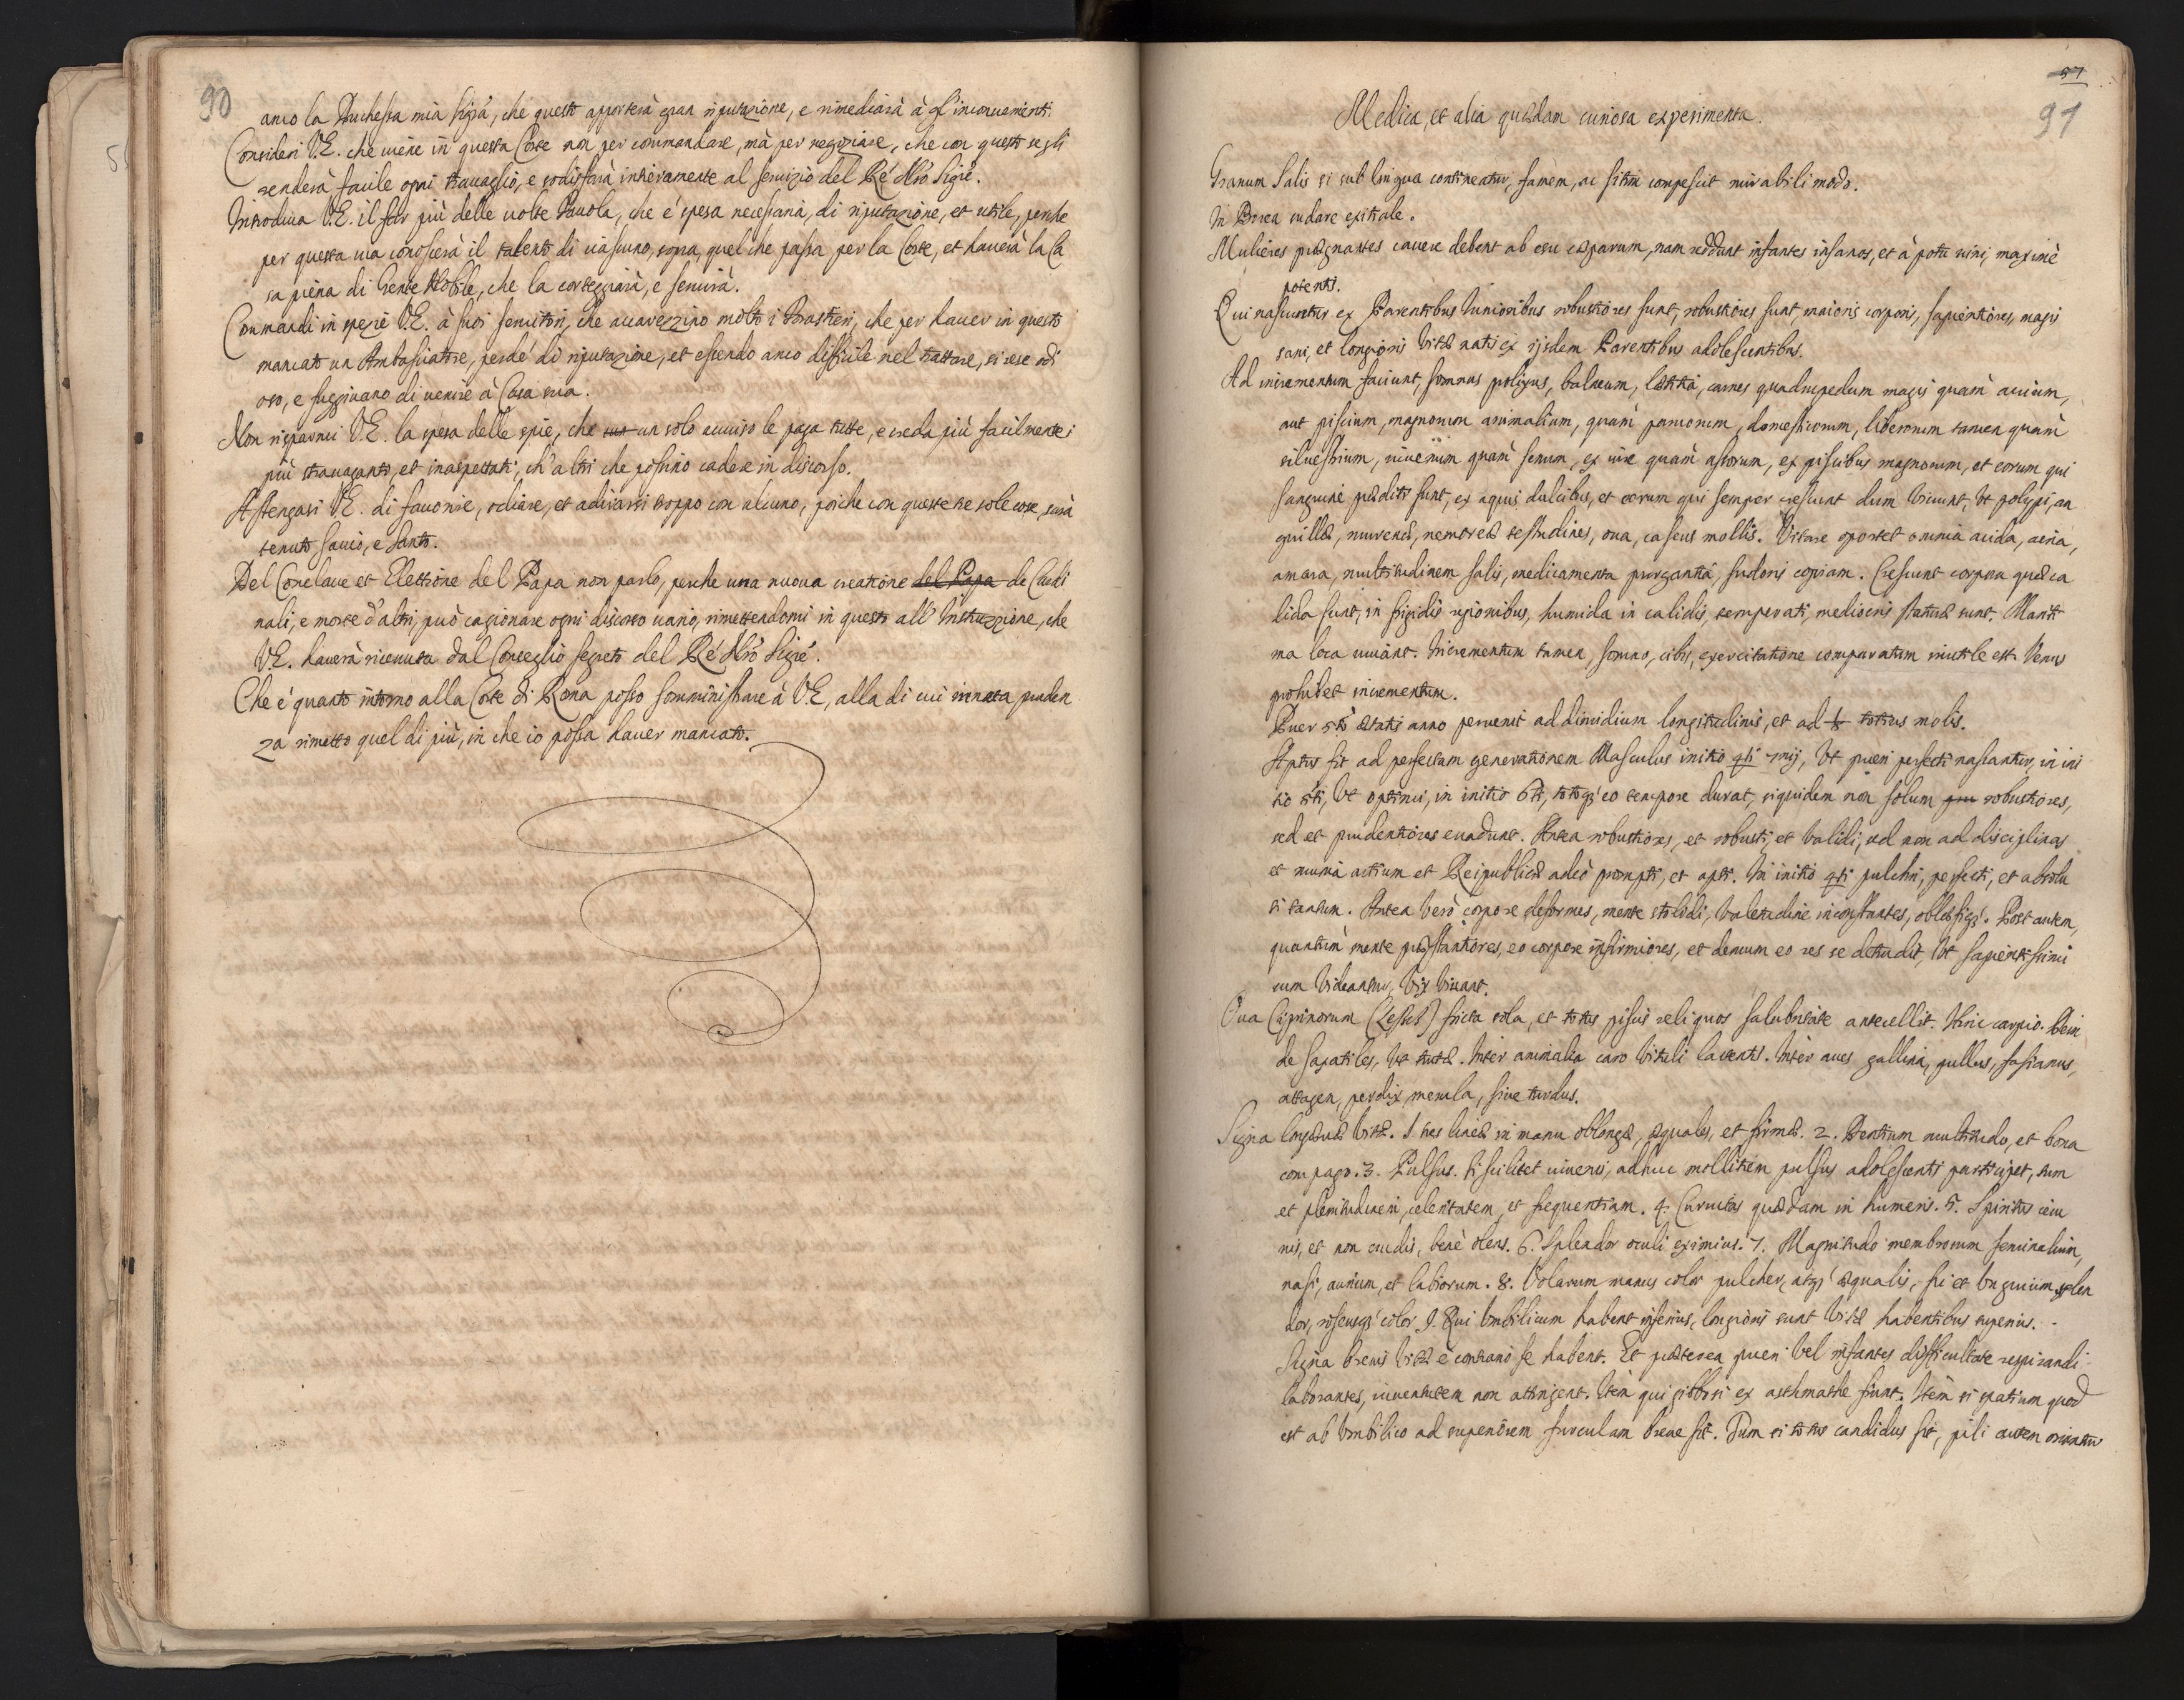 90
anco la Duchessa mia Sig.ra, che questo apporterà gran riputazione, e rimediarà à gl'inconuenienti.
Consideri V.E. che uiene in questa Corte non per commandare, mà per negoziare, che con questo se gli
renderà facile ogni trauaglio, e sodisfarà intieramente al seruizio del Rè Nr̃o Sig.re.
Introduca V.E. il far più delle uolte Tauola, che e' spesa necessaria, di riputazione, et utile, perche
per questa uia conoscerà il talento di ciascuno, sopra, quel che passa per la Corte, et hauerà la Ca
sa piena di Gente Nobile, che la corteggiarà, e seruirà.
Commandi in spezie V.E. à suoi seruitori, che accarezzino molto i Forastieri, che per hauer in questo
mancato un Ambasciatore, perdè di riputazione, et essendo anco difficile nel trattare, si rese odi
oso, e fuggiuano di uenire à Casa sua.
Non risparmi V.E. la spesa delle spie, che un solo auuiso le paga tutte, e creda più facilmente i
più strauaganti, et inaspettati, ch'altri che possino cadere in discorso.
Astengasi V.E. di fauorire, odiare, et adirarsi troppo con alcuno, poiche con queste tre sole cose, sarà
tenuto, sauio, e santo.
Del Conclaue et Elettione del Papa non parlo, perche una nuoua creatione del Papa de Cardi
nali, e morte d'altri, può cagionare ogni discorso uario, rimettendomi in questo all'Instruzzione, che
V.E. hauerà riceuuta dal Conseglio segreto del Rè Nr̃o Sig.re.
Che e' quanto intorno alla Corte di Roma posso somministrare à V.E, alla di cui innata pruden
za rimetto quel di più, in che io possa hauer mancato.
57
91
Medica, et alia quædam curiosa experimenta.
Granum Salis si sub lingua contineatur, famem, ac sitim compescit mirabili modo.
In Borea sudare exitiale.
Mulieres prægnantes cauere debent ab esu cæparum, nam reddunt infantes insanos, et à potu uini, maximè
potenti.
Qui nascuntur ex Parentibus Iunioribus robustiores sunt, robustiores sunt, maioris corporis, sapientiores, magis
sani, et longioris vitæ natis ex ijsdem Parentibus adolescentibus.
Ad incrementum faciunt, somnus prolixus, balneum, lætitia, carnes quadrupedum magis quàm auium,
aut piscium, magnorum animalium, quàm paruorum, domesticorum, liberorum tamen quàm
siluestrium, iuuenum quàm senum, ex iure quàm assorum, ex piscibus magnorum, et eorum qui
sanguine præditi sunt, ex aquis dulcibus, et eorum qui semper crescunt dum viuunt, vt polypi, an
guillæ, murenæ, nemoreæ testudines, oua, caseus mollis. Vitare oportet omnia acida, acria,
amara, multitudinem salis, medicamenta purgantia, sudoris copiam. Crescunt corpora quæ ca
lida sunt, in frigidis regionibus, humida in calidis, temperati, mediocris staturæ sunt. Mariti
ma loca iuuant. Incrementum tamen, somno, cibis, exercitatione comparatum inutile est. Venus
prohibet incrementum.
Puer 5ti ætatis anno peruenit ad dimidium longitudinis, et ad 1/8 totius molis.
Aptus fit ad perfectam generationem Masculus initio 4ti 7nij, Vt pueri perfecti nascantur, in ini
tio 5ti, Vt optimi, in initio 6ti, totoq; eo tempore durat, siquidem non solum pru robustiores,
sed et prudentiores euadunt. Antea robustiores, et robusti, et validi, sed non ad disciplinas
et munia actium et Reipublicæ adeò prompti, et apti. In initio 4ti pulchri, perfecti, et absolu
ti tantum. Antea verò corpore deformes, mente stolidi, valetudine inconstantes, obsesiq;. Post autem,
quantùm mente præstantiores, eo corpore infirmiores, et demum eo res se detrudit, Vt sapientissimi
cum videantur, vix viuant.
Oua Ciprinorum (Zesses) fricta sola, et totus piscis reliquos salubritate antecellit. Hinc carpio. Dein
de saxatiles, vt trutæ. Inter animalia caro vituli lactentis. Inter aues gallina, gullus, fasianus,
attagen, perdix, merula, siue turdus.
Signa longæuæ vitæ. 1. tres lineæ in manu oblongæ, æquales, et firmæ. 2. Dentium multitudo, et bona
compago. 3. Pulsus. si scilicet iuuenis, adhuc mollitiem pulsus adolescentis participet, tum
et plenitudinem, celeritatem, et frequentiam. 4. Curuitas quædam in humeris. 5. Spiritus ieiu
nis, et non crudis, benè olens. 6. Splendor oculi eximius. 7. Magnitudo membrorum seminalium,
nasi, aurium, et labiorum. 8. Volarum manus color pulcher, atq; æqualis, sic et vnguium splen
dor, roseusq; color. 9. Qui vmbilicum habent inferius, longioris sunt vitæ habentibus superius.
Signa breuis vitæ è contrario se habent. Et præterea pueri vel infantes difficultate respirandi
laborantes, iuuentutem non attingent. Item qui gibbosi ex asthmathe fiunt. Item si spatium quod
est ab vmbilico ad superiorem furculam breue sit. Tum si totus candidus sit, pili autem oriantur